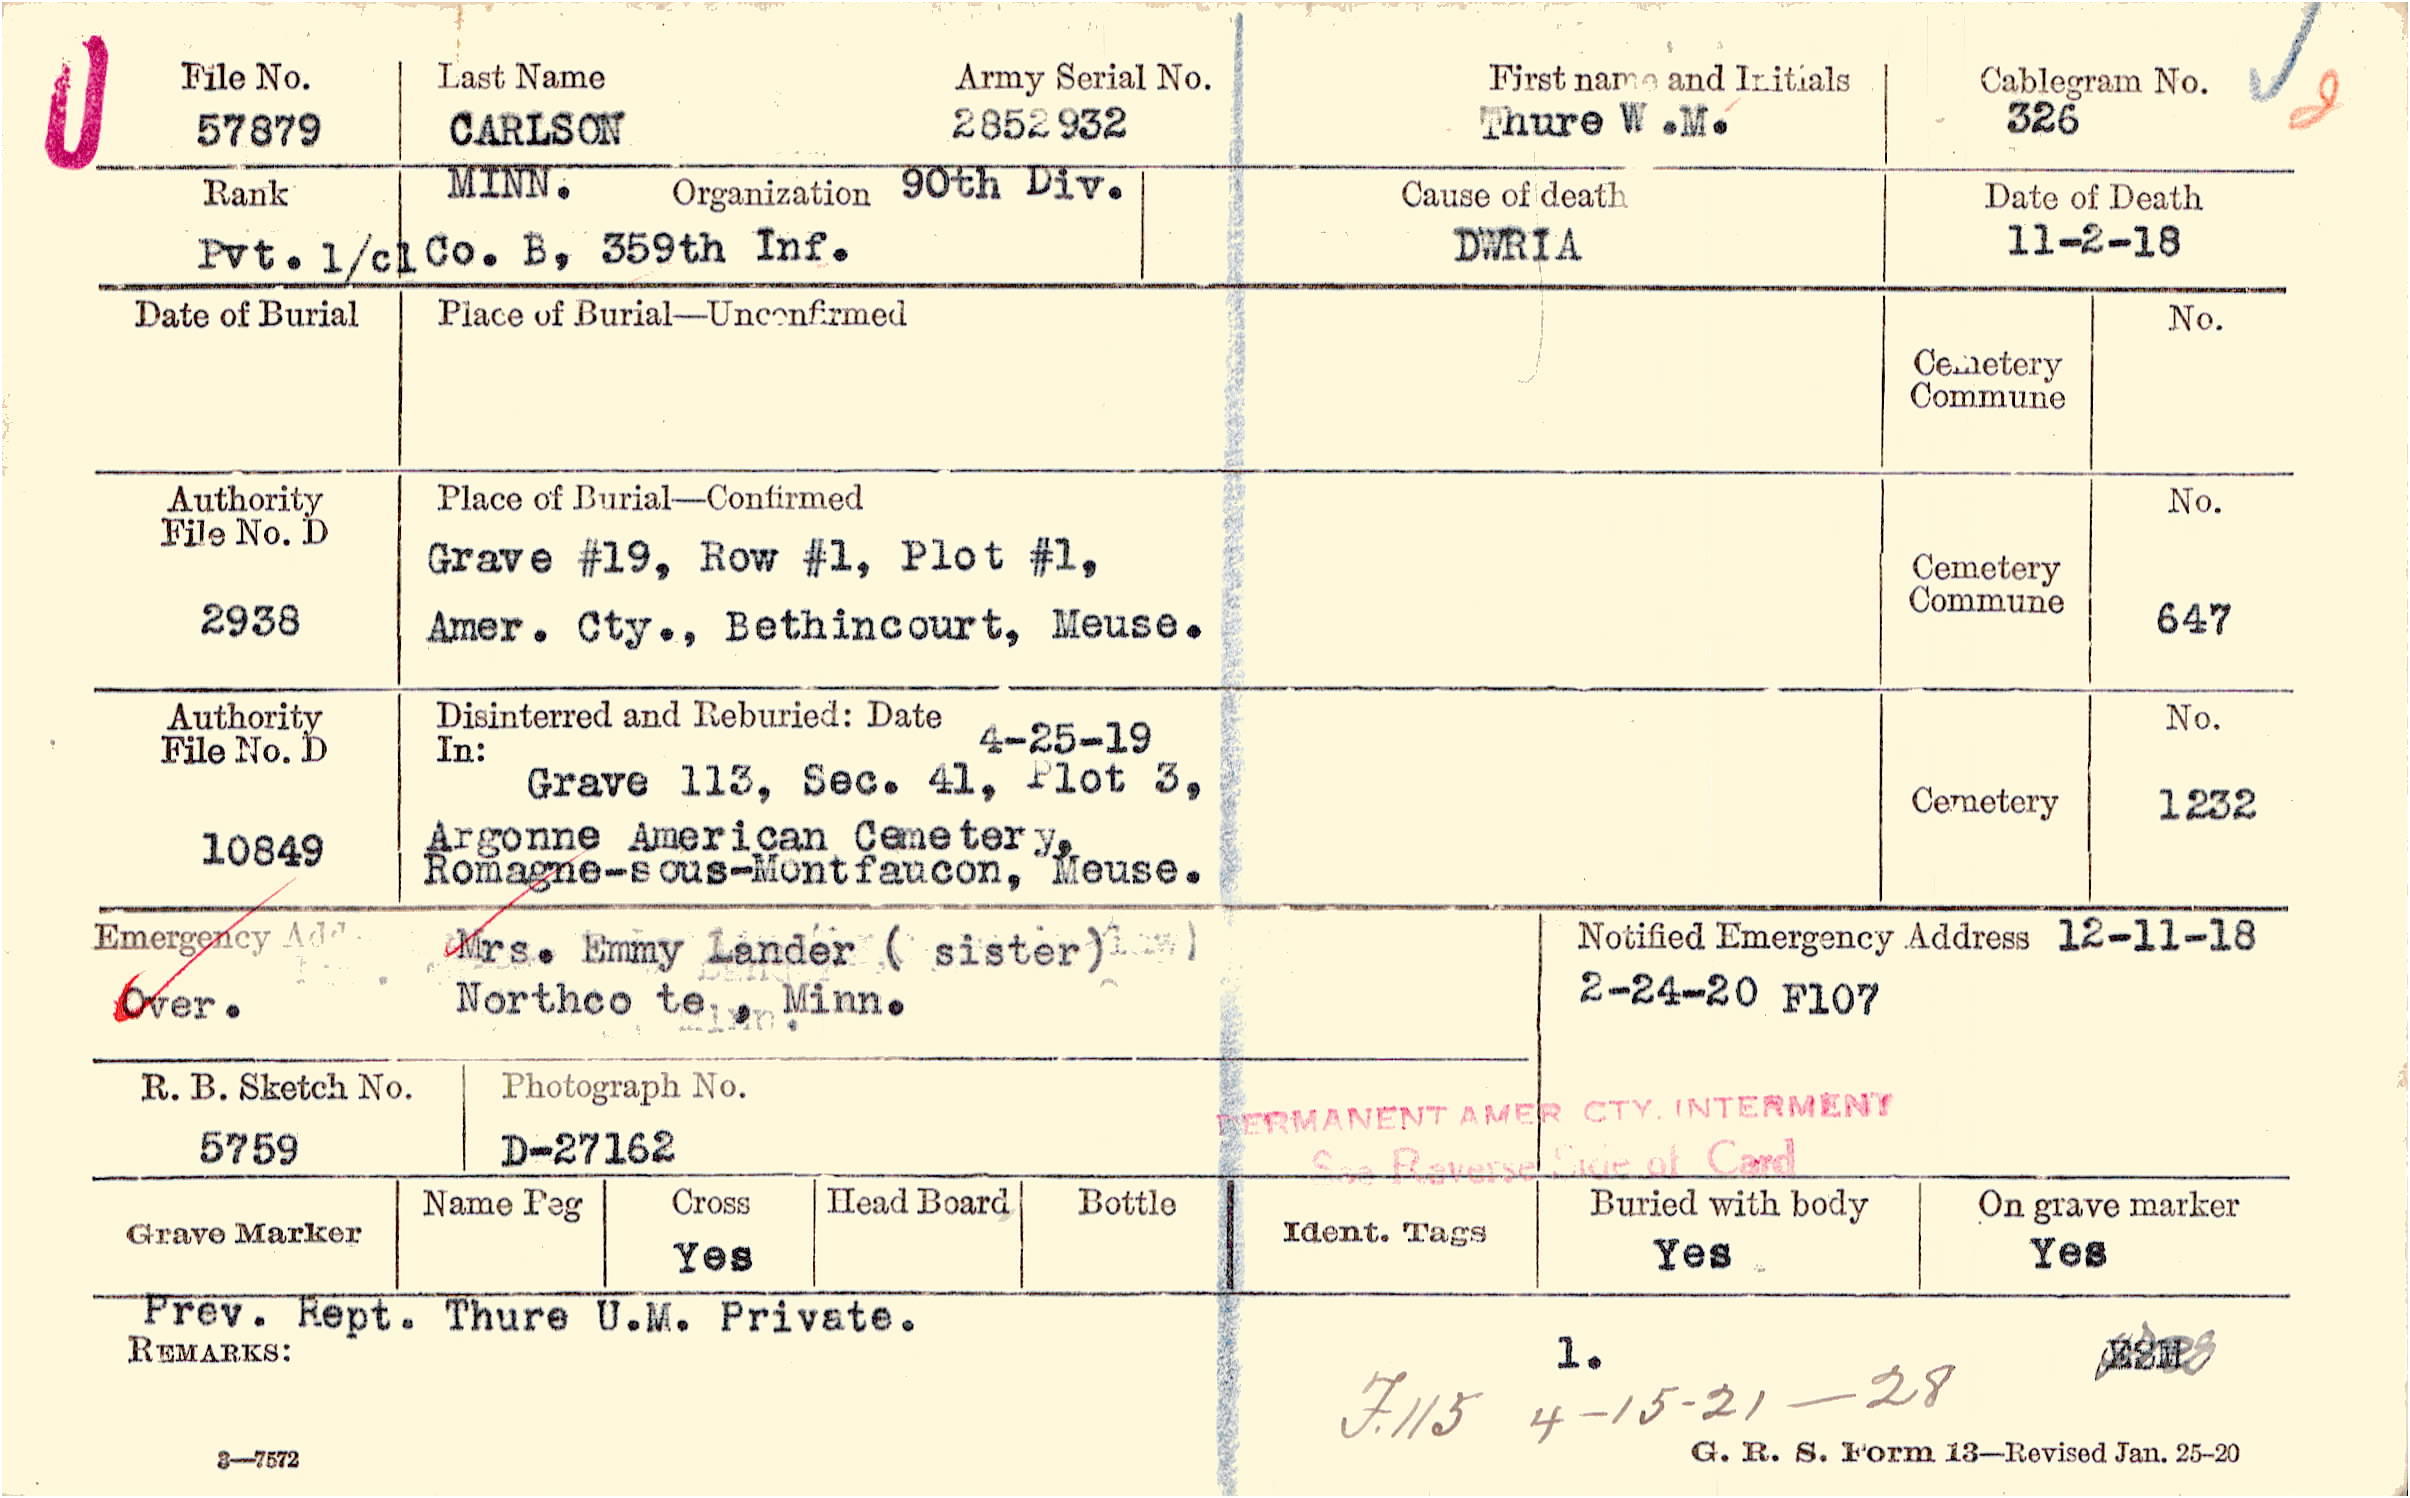 File No. Last Name Army Serial No. First name and Initials Cablegram No.
57879 CARLSON 2852932 Thure W.M. 326
Rank MINN. Organization 90th Div. Cause of death Date of Death
Pvt. 1/cl Co. B, 359th Inf. DWRIA 11-2-18
Date of Burial Place of Burial—Unconfirmed No.
Cemetery
Commune
Authority Place of Burial—Confirmed No.
File No. D
Grave #19, Row #1, Plot #1, Cemetery
Commune
2938 Amer. Cty., Bethincourt, Meuse. 647
Authority Disinterred and Reburied: Date No.
File No. D In: 4-25-19
Grave 113, Sec. 41, Plot 3,
Cemetery 1232
10849 Argonne American Cemetery,
Romagne-sous-Montfaucon, Meuse.
Emergency Add. Mrs. Emmy Lander ( sister) Notified Emergency Address 12-11-18
Over. Northcote, Minn. 2-24-20 F107
R. B. Sketch No. Photograph No.
5759 D-27162
PERMANENT AMER CTY. INTERMENT
See Reverse Side of Card
Grave Marker Name Peg Cross Head Board Bottle Ident. Tags Buried with body On grave marker
Yes Yes Yes
Prev. Rept. Thure U.M. Private.
REMARKS: 1.
F.115 4-15-21—28
3—7572 G. R. S. Form 13—Revised Jan. 25-20